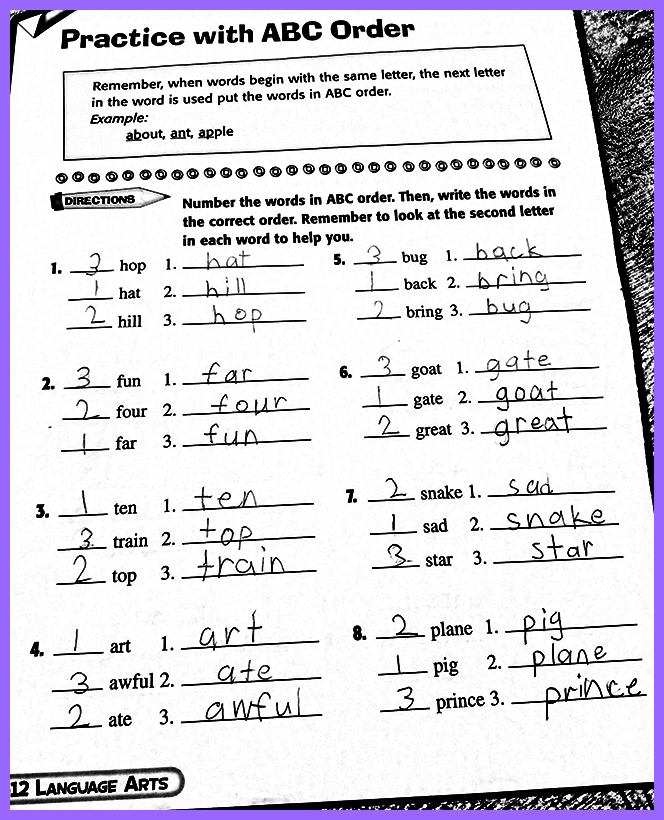 Practice with ABC Order
Remember, when words begin with the same letter, the next letter
in the word is used put the words in ABC order.
Example:
about, ant, apple
DIRECTIONS
Number the words in ABC order. Then, write the words in
the correct order. Remember to look at the second letter
in each word to help you.
1. 3 hop 1. hat
1 hat 2. hill
2 hill 3. hop
2. 3 fun 1. far
2 four 2. four
1 far 3. fun
3. 1 ten 1. ten
3 train 2. top
2 top 3. train
4. 1 art 1. art
3 awful 2. ate
2 ate 3. awful
5. 3 bug 1. back
1 back 2. bring
2 bring 3. bug
6. 3 goat 1. gate
1 gate 2. goat
2 great 3. great
7. 2 snake 1. sad
1 sad 2. snake
3 star 3. star
8. 2 plane 1. pig
1 pig 2. plane
3 prince 3. prince
12 LANGUAGE ARTS